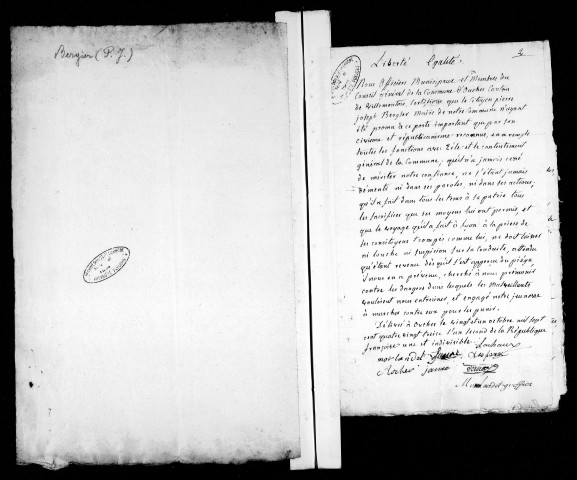 Bergier (P. J.)
Liberté Egalité.
Nous Officiers Municipaux et Membres du
Conseil général de la Commune d'Ouches Canton
de Villemontais, certifions que le Citoyen pierre
joseph Bergier Maire de notre Commune n'ayant
été promu à ce poste important que par son
civisme et républicanisme reconnus, en a rempli
toutes les fonctions avec Zèle et le contentement
général de la Commune, qu'il n'a jamais cessé
de mériter notre confiance, ne s'étant jamais
démenti ni dans ses paroles, ni dans ses actions,
qu'il a fait dans tous les tems à sa patrie tous
les sacrifices que ses moyens lui ont permis, et
que le voyage qu'il a fait à Lyon à la prière de
ses concitoyens trompés comme lui, ne doit laisser
ni louche ni suspicion sur sa conduite, attendu
qu'étant revenu dès qu'il s'est apperçu du piège,
il nous en a prévenu, cherché à nous prémunir
contre les dangers dans lesquels les Malveillants
voulaient nous entrainer, et engagé notre jeunesse
à marcher contre eux pour les punir.
Délivré à Ouches le vingt et un octobre mil sept
cent quatre vingt treize l'an second de la République
française une et indivisible.